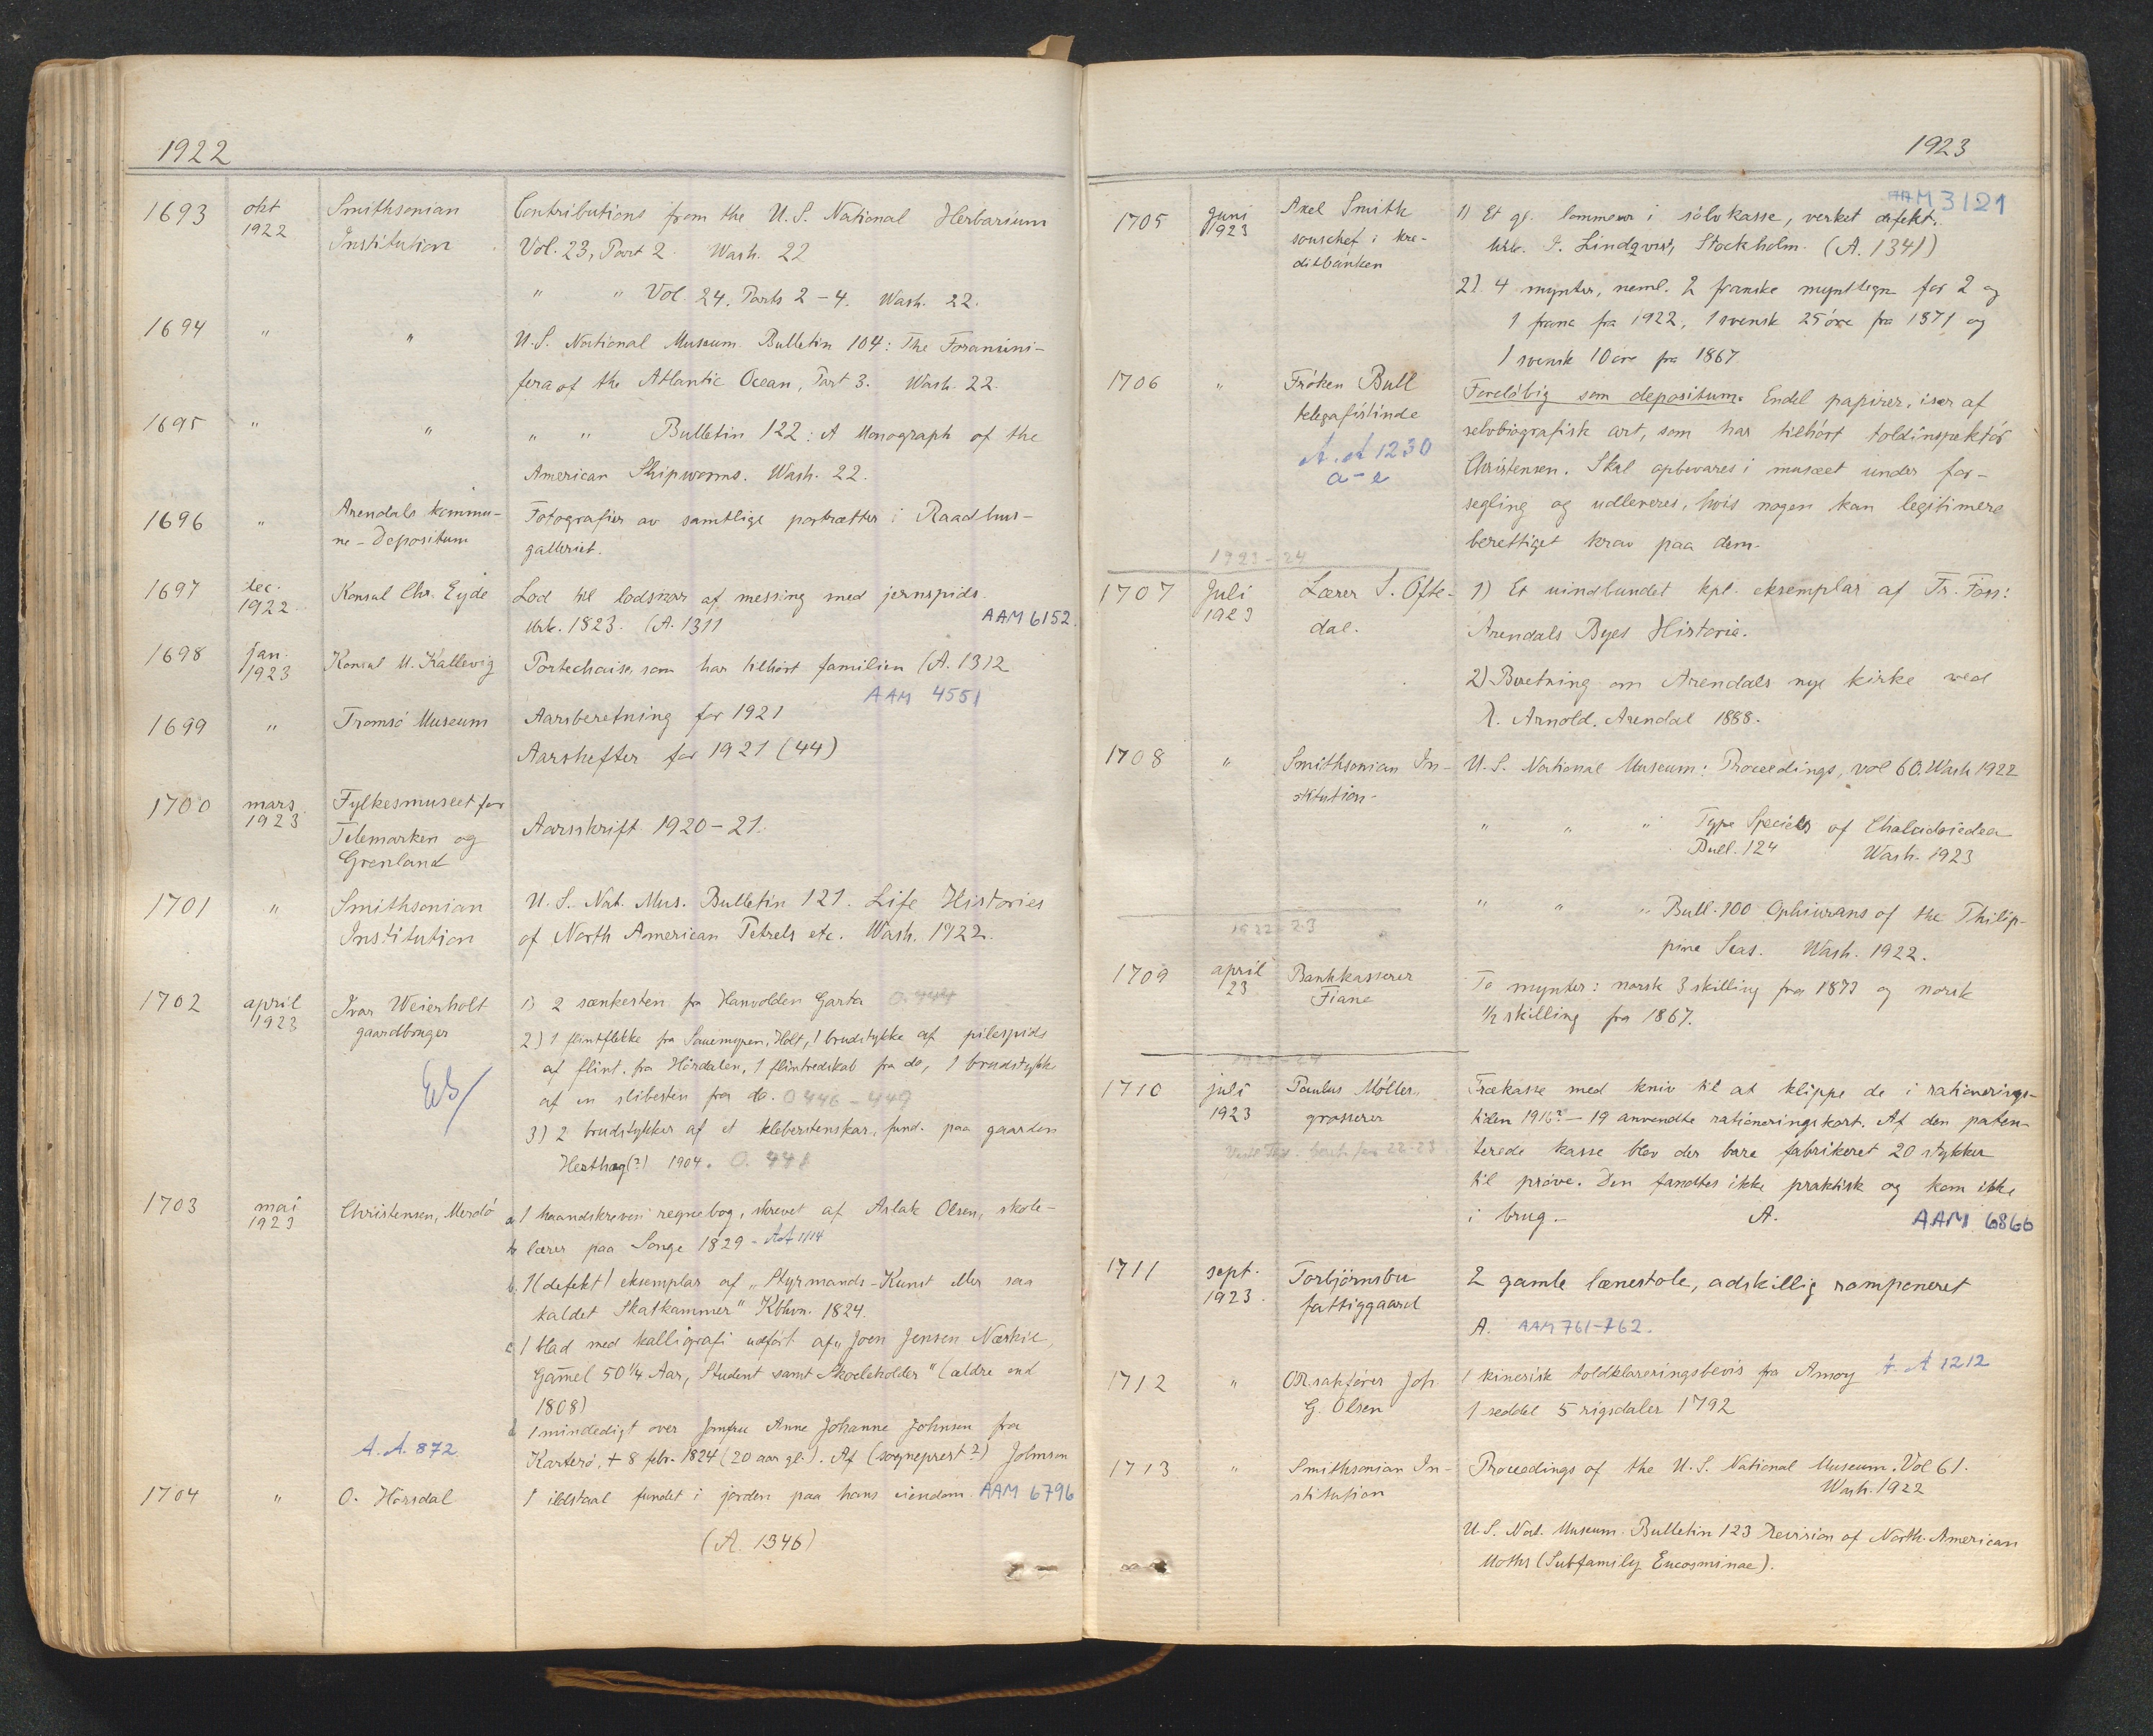 1922
1693 okt 1922 Smithsonian Institution Contributions from the U.S. National Herbarium
Vol. 23, Part 2. Wash. 22
" " Vol. 24, Parts 2-4. Wash. 22.
1694 " " U.S. National Museum Bulletin 104: The Foramini-
fera of the Atlantic Ocean, Part 3. Wash. 22.
1695 " " " " Bulletin 122: A Monograph of the
American Shipworms. Wash. 22.
1696 " Arendals kommu- Fotografier av samtlige portrætter i Raadhus-
ne - Depositum galleriet.
1697 dec. 1922 Konsul Chr. Eyde Lod til lodsnor af messing med jernspids.
Mrk. 1823. (A. 1311 AAM 6152.
1698 jan. 1923 Konsul M. Kallevig Portechaise, som har tilhørt familien (A. 1312
AAM 4551
1699 " Tromsö Museum Aarsberetning for 1921
Aarshefter for 1921 (44)
1700 mars 1923 Fylkesmuseet for
Telemarken og Aarsskrift 1920-21.
Grenland
1701 " Smithsonian U.S. Nat. Mus. Bulletin 121. Life Histories
Institution of North American Petrels etc. Wash. 1922.
1702 april 1923 Ivar Weierholt 1) 2 sænkesten fra Hanvolden Garta
gaardbruger 2) 1 flintflekke fra Sauemyren, Holt, 1 brudstykke af pilespids
af flint, fra Hórdalen, 1 flintredskab fra do, 1 brudstykke
af en slibesten fra do. O 446-449
3) 2 brudstykker af et kleberstenskar, fund. paa gaarden
Hesthag(?) 1904. O. 448
1703 mai 1923 Christensen, Merdö a 1 haandskreven regnebog, skrevet af Aslak Olsen, skole-
lærer paa Songe 1829 - AA 1114
b. 1 (defekt) eksemplar af "Styrmands-Kunst eller saa
kaldet Skatkammer" Kbhvn. 1824.
c 1 blad med kalligrafi udført af "Joen Jensen Næskil,
Gamel 50 1/4 Aar, Student samt Skoeleholder" (ældre end
1808)
d 1 mindedigt over Jomfru Anne Johanne Johnsen fra
A. A. 872 Karterö, + 8 febr. 1824 (20 aar gl.). Af (sogneprest?) Johnson
1704 " O. Hórsdal 1 ildstaal fundet i jorden paa hans eiendom AAM 6796
(A. 1346)
1923
AAM 3121
1705 Juni 1923 Axel Smith 1) Et gl. lommeur i sölvkasse, verket defekt.
souschef i kre- Mrk. P. Lindqvist, Stockholm. (A. 1341)
ditbanken
2) 4 mynter, neml. 2 franske mynttegn for 2 og
1 franc fra 1922, 1 svensk 25 öre fra 1871 og
1 svensk 10 öre fra 1867
1706 " Fröken Bull Forelöbig som depositum. Endel papirer, især af
telegafistinde selvbiografisk art, som har tilhórt toldinspektör
A. A 1230 Christensen. Skal opbevares i museet under for-
a-e segling og udleveres, hvis nogen kan legitimere
berettiget krav paa dem.
1923-24
1707 Juli 1923 Lærer S. Ofte- 1) Et uindbundet kpl. eksemplar af Fr. Foss:
dal. Arendals Byes Historie.
2) Beretning om Arendals nye kirke ved
R. Arnold. Arendal 1888.
1708 " Smithsonian In- U.S. National Museum: Proceedings, vol 60. Wash 1922
stitution-
" " " Type Species of Chalcidoidea
Bull. 124 Wash. 1923
" " " Bull. 100 Ophiurans of the Philip-
pine Seas. Wash. 1922.
1922-23
1709 april 23 Bankkasserer To mynter: norsk 3 skilling fra 1873 og norsk
Fiane 1/2 skilling fra 1867.
1923-24
1710 juli 1923 Paulus Möller, Trækasse med kniv til at klippe de i rationerings-
grosserer tiden 1916?-19 anvendte rationeringskort. Af den paten-
terede kasse blev der bare fabrikeret 20 stykker
til pröve. Den fandtes ikke praktisk og kom ikke
i brug.- A. AAM 6866
1711 sept. 1923 Torbjörnsbu 2 gamle lænestole, adskillig ramponeret
fattiggaard A. AAM 761-762.
1712 " ORsakförer Joh. 1 kinesisk toldklareringsbevis fra Amoy A. A 1212
G. Olsen 1 seddel 5 rigsdaler 1792
1713 " Smithsonian In- Proceedings of the U.S. National Museum. Vol 61.
stitution Wash. 1922
U.S. Nat. Museum. Bulletin 123 Revision of North-American
Moths (Subfamily Eucosminae).